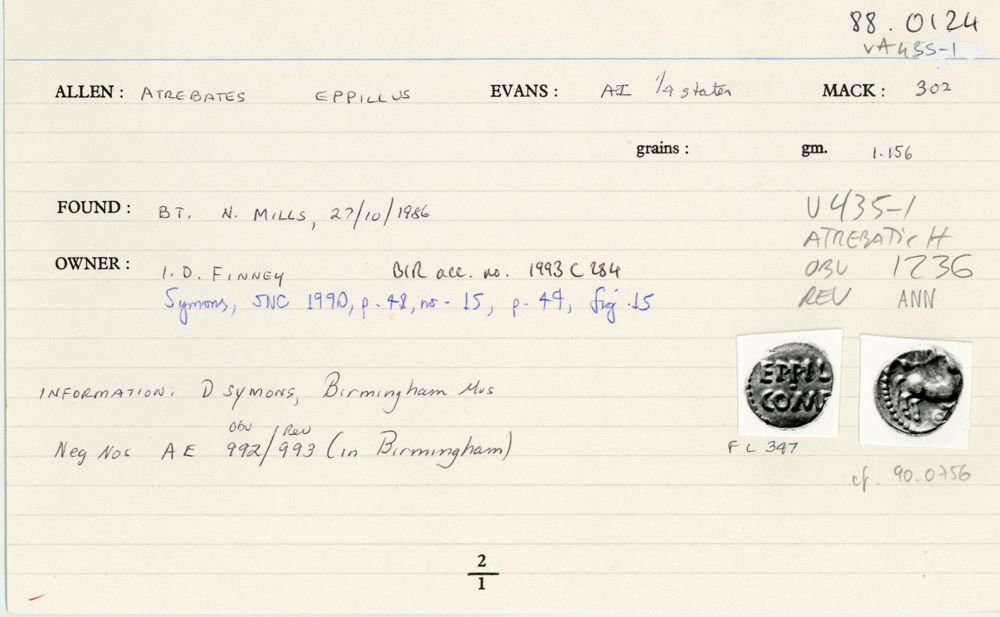 88.0124
VA435-1
ALLEN: ATREBATES EPPILLUS EVANS: AI 1/4 stater MACK: 302
grains: gm. 1.156
FOUND: BT. N. MILLS, 27/10/1986
V435-1
ATREBATIC H
OWNER: I.D. FINNEY BIR acc. no. 1993 C 284
OBV 1236
Symons, SNC 1990, p. 48, no. 15, p. 49, fig. 15
REV ANN
EPPIL
COM
INFORMATION: D SYMONS, Birmingham Mus
Obv Rev
Neg Nos AE 992/993 (in Birmingham)
FL 347
cf. 90.0756
2
1